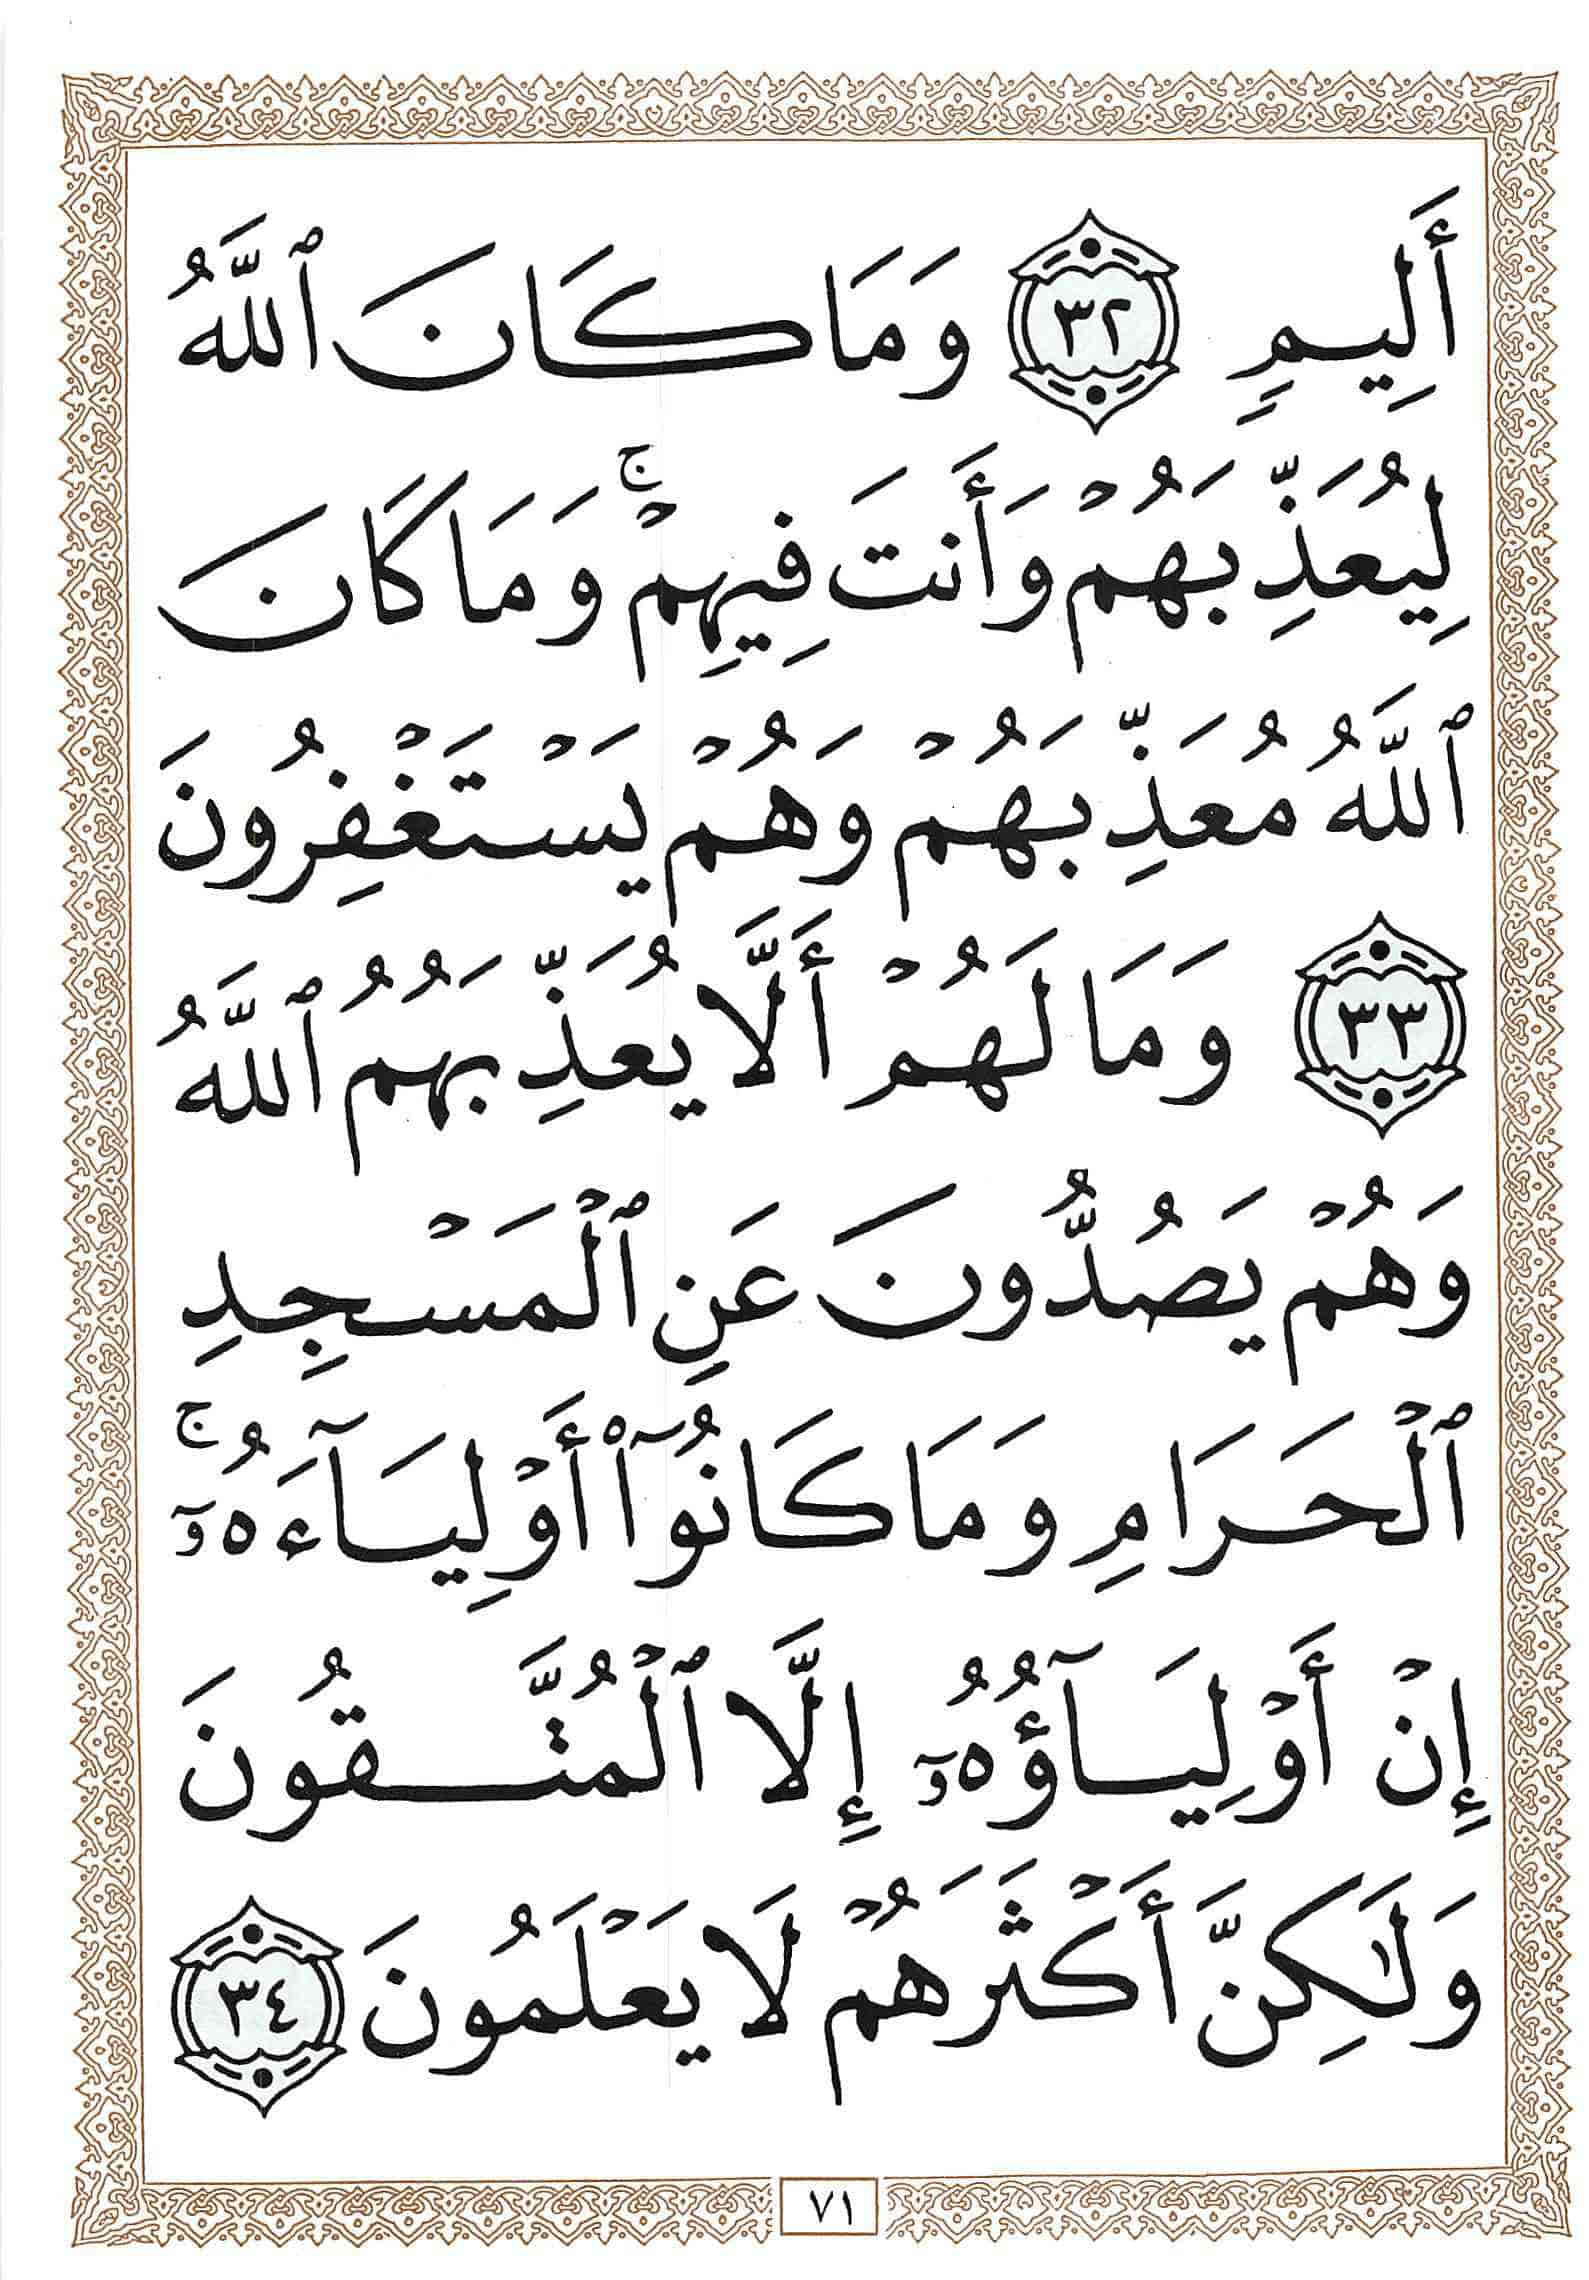 أَلِيمٍ ٣٢ وَمَا كَانَ ٱللَّهُ
لِيُعَذِّبَهُمْ وَأَنتَ فِيهِمْ ۚ وَمَا كَانَ
ٱللَّهُ مُعَذِّبَهُمْ وَهُمْ يَسْتَغْفِرُونَ
٣٣ وَمَا لَهُمْ أَلَّا يُعَذِّبَهُمُ ٱللَّهُ
وَهُمْ يَصُدُّونَ عَنِ ٱلْمَسْجِدِ
ٱلْحَرَامِ وَمَا كَانُوٓا۟ أَوْلِيَآءَهُۥٓ ۚ
إِنْ أَوْلِيَآؤُهُۥٓ إِلَّا ٱلْمُتَّقُونَ
وَلَٰكِنَّ أَكْثَرَهُمْ لَا يَعْلَمُونَ ٣٤
٧١